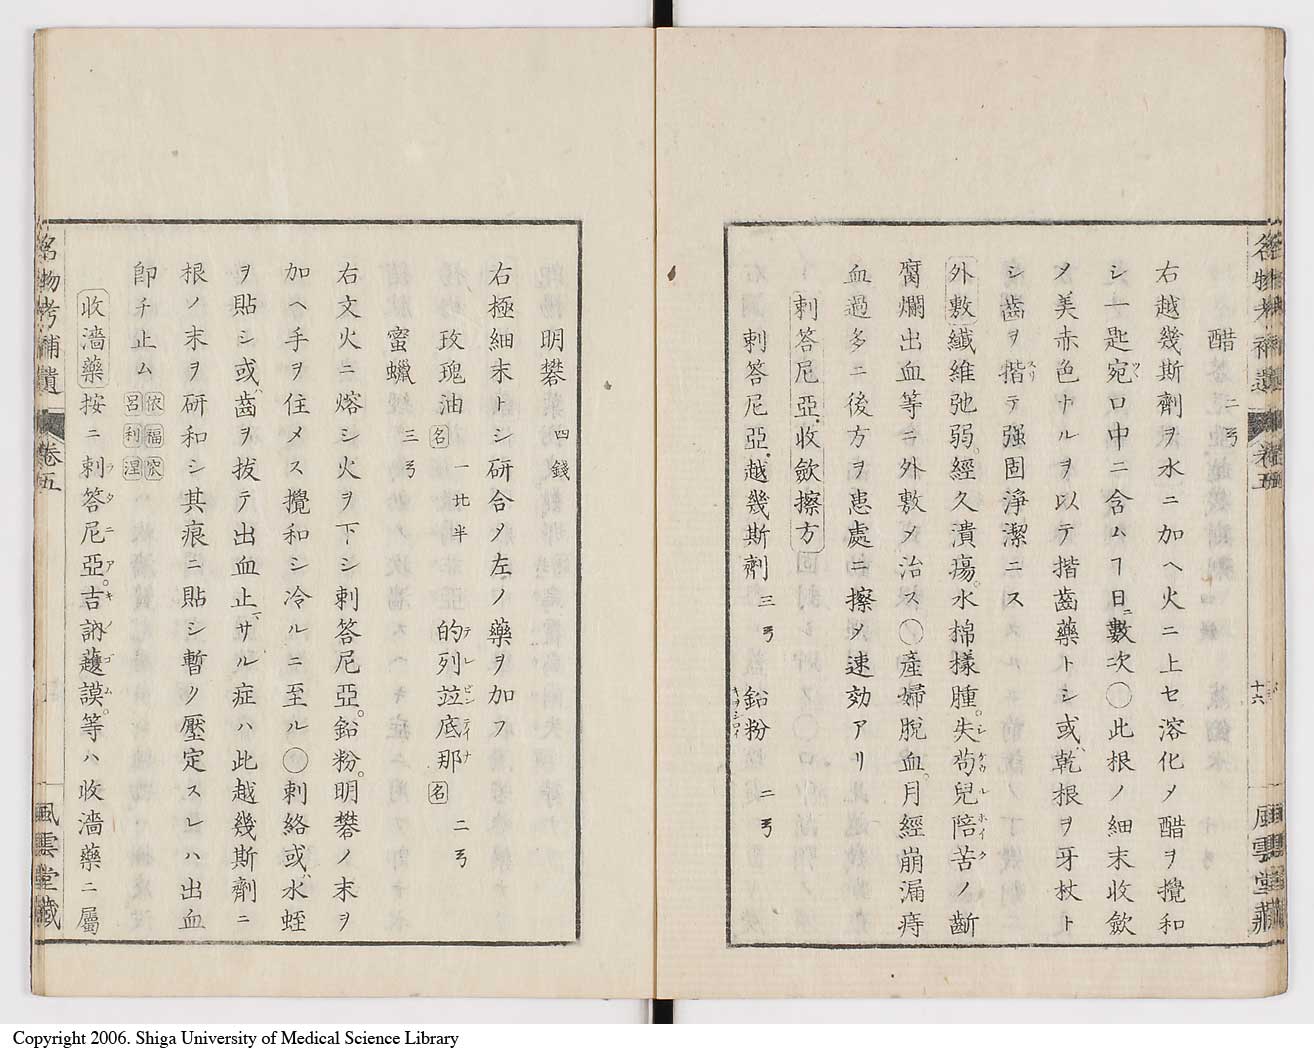 醋 二弓
右越幾斯劑ヲ水ニ加ヘ火ニ上セ溶化メ醋ヲ攪和
シ一匙宛口中ニ含ムヿ日ニ數次〇此根ノ細末收歛
メ美赤色ナルヲ以テ揩齒藥トシ或ハ乾根ヲ牙杖ト
シ齒ヲ揩テ强固淨潔ニス
外敷纖維弛弱。經久潰瘍。水棉樣腫。失苟兒陪苦ノ齗
腐爛出血等ニ外敷メ治ス〇產婦脫血。月經崩漏痔
血過多ニ後方ヲ患處ニ擦メ速効アリ
刺答尼亞收歛擦方
刺答尼亞越幾斯劑 三弓 鉛粉 二弓
名物考補遺 卷五 十六 風雲堂藏
明礬 四錢
右極細末トシ研合メ左ノ藥ヲ加フ
玫瑰油名 一匕半 的列竝底那名 二弓
蜜蠟 三弓
右文火ニ熔シ火ヲ下シ刺答尼亞。鉛粉。明礬ノ末ヲ
加ヘ手ヲ住メス攪和シ冷ルニ至ル〇刺絡或ハ水蛭
ヲ貼シ或ハ齒ヲ拔テ出血止サル症ハ此越幾斯劑ニ
根ノ末ヲ研和シ其痕ニ貼シ暫ク壓定スレハ出血
卽チ止ム 依福 呂利涅
收濇藥按ニ刺答尼亞。吉納護謨等ハ收濇藥ニ屬
名物考補遺 卷五 風雲堂藏
Copyright 2006. Shiga University of Medical Science Library